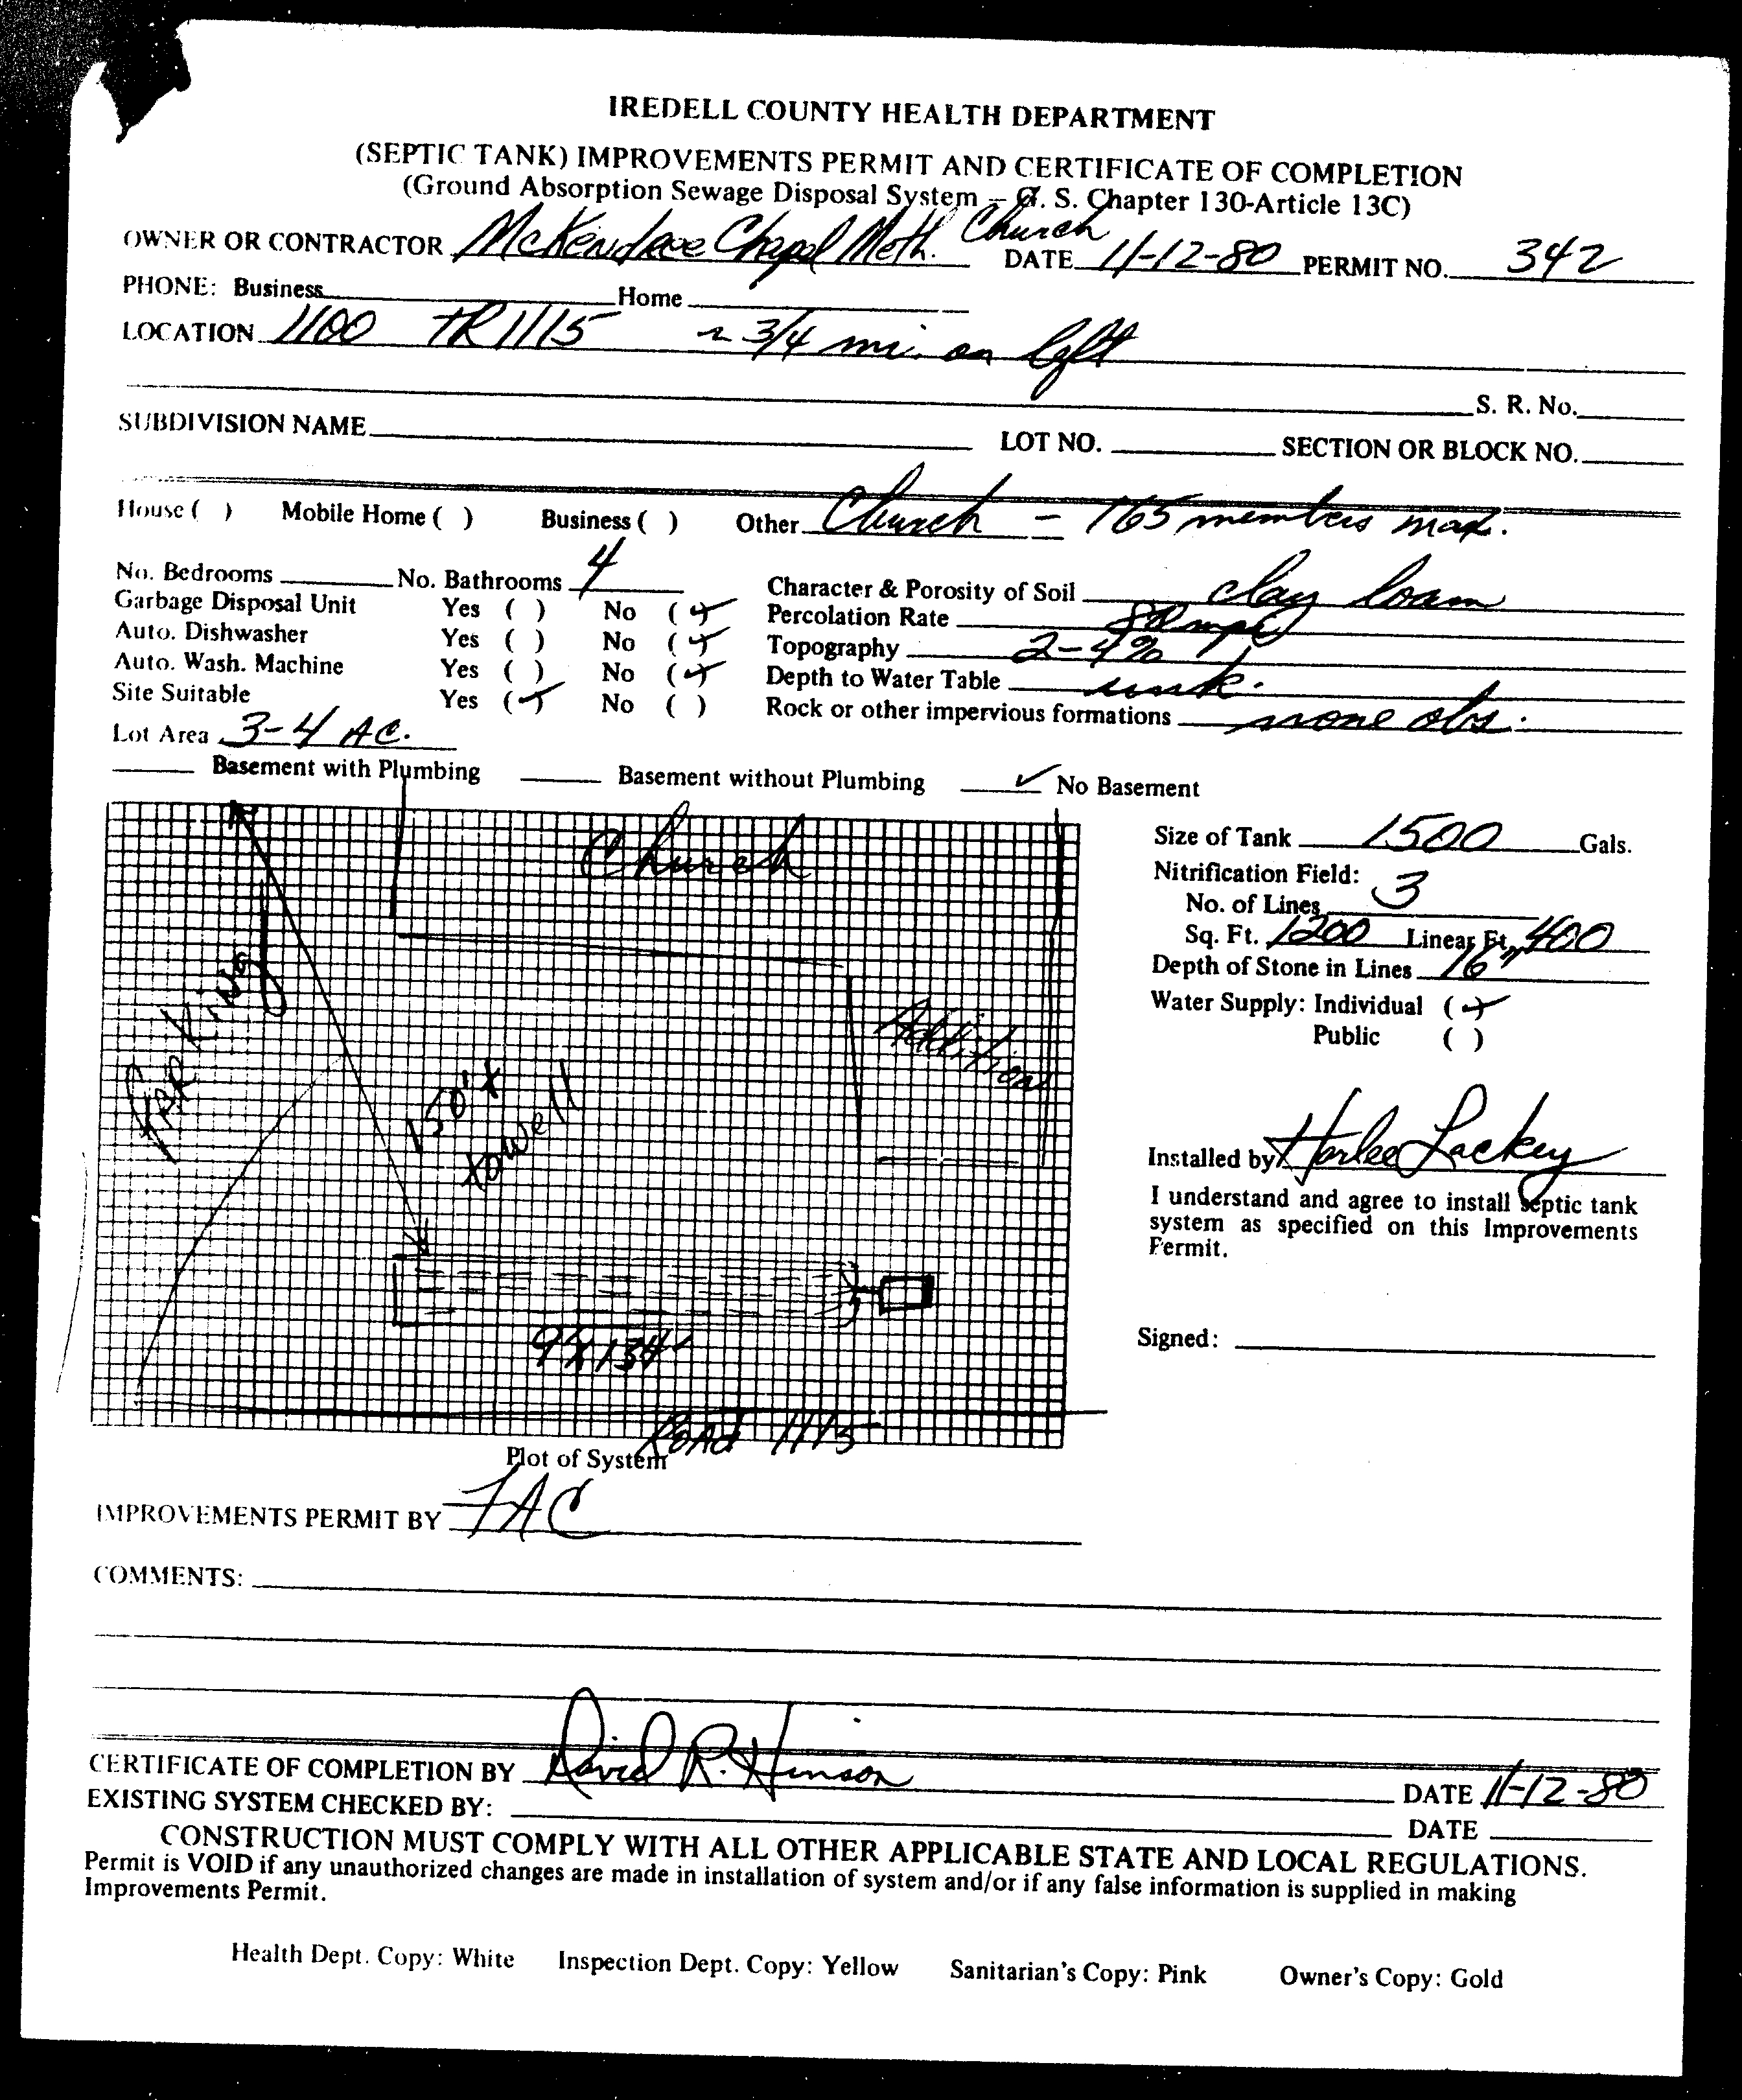 IREDELL COUNTY HEALTH DEPARTMENT
(SEPTIC TANK) IMPROVEMENTS PERMIT AND CERTIFICATE OF COMPLETION
(Ground Absorption Sewage Disposal System – G. S. Chapter 130-Article 13C)
OWNER OR CONTRACTOR McKendree Chapel Meth. Church DATE 11-12-80 PERMIT NO. 342
PHONE: Business Home
LOCATION 1100 TR 1115 ~ 3/4 mi. on left
S. R. No.
SUBDIVISION NAME LOT NO. SECTION OR BLOCK NO.
House ( ) Mobile Home ( ) Business ( ) Other Church - 165 members max.
No. Bedrooms No. Bathrooms 4 Character & Porosity of Soil clay loam
Garbage Disposal Unit Yes ( ) No (✓) Percolation Rate mpi
Auto. Dishwasher Yes ( ) No (✓) Topography 2-4%
Auto. Wash. Machine Yes ( ) No (✓) Depth to Water Table unk.
Site Suitable Yes (✓) No ( ) Rock or other impervious formations none obs.
Lot Area 3-4 AC.
Basement with Plumbing Basement without Plumbing ✓ No Basement
Church
Size of Tank 1500 Gals.
Nitrification Field:
No. of Lines 3
Sq. Ft. 1200 Linear Ft. 400
Depth of Stone in Lines 16"
Water Supply: Individual (✓)
Public ( )
Parking
Addition
150'+
to well
Installed by Harlee Lackey
I understand and agree to install septic tank
system as specified on this Improvements
Permit.
9 x 134
Signed:
Road 1115
Plot of System
IMPROVEMENTS PERMIT BY FAC
COMMENTS:
CERTIFICATE OF COMPLETION BY David R. Hinson DATE 11-12-80
EXISTING SYSTEM CHECKED BY: DATE
CONSTRUCTION MUST COMPLY WITH ALL OTHER APPLICABLE STATE AND LOCAL REGULATIONS.
Permit is VOID if any unauthorized changes are made in installation of system and/or if any false information is supplied in making
Improvements Permit.
Health Dept. Copy: White Inspection Dept. Copy: Yellow Sanitarian's Copy: Pink Owner's Copy: Gold